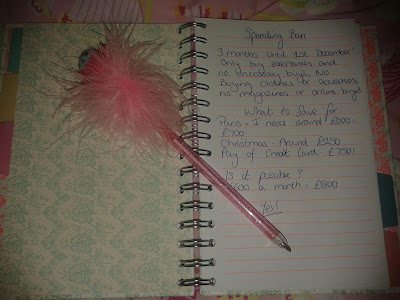 Spending Ban
3 months until 1st December!
Only buy essentials and
no unnecessary buys. No
Buying clothes or accessories
no magazines or online buys!
What to Save for
Paris - I need around £600 -
£700
Christmas - Around £250
Pay of Credit Card £750!
Is it possible?
a month = £1800
Yes!